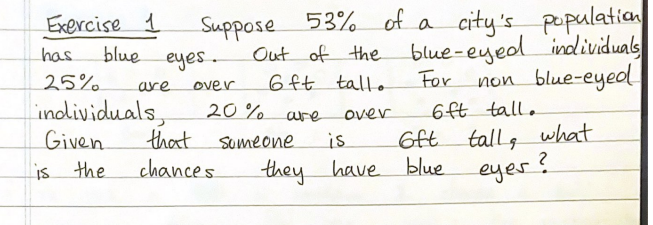 Exercise 1 Suppose 53% of a city's population
has blue eyes. Out of the blue-eyed individuals
25% are over 6ft tall. For non blue-eyed
individuals, 20% are over 6ft tall.
Given that someone is 6ft tall, what
is the chances they have blue eyes?